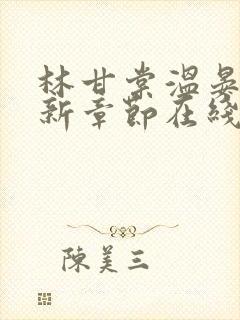 林甘棠温晏
新章節在綫
陳美三